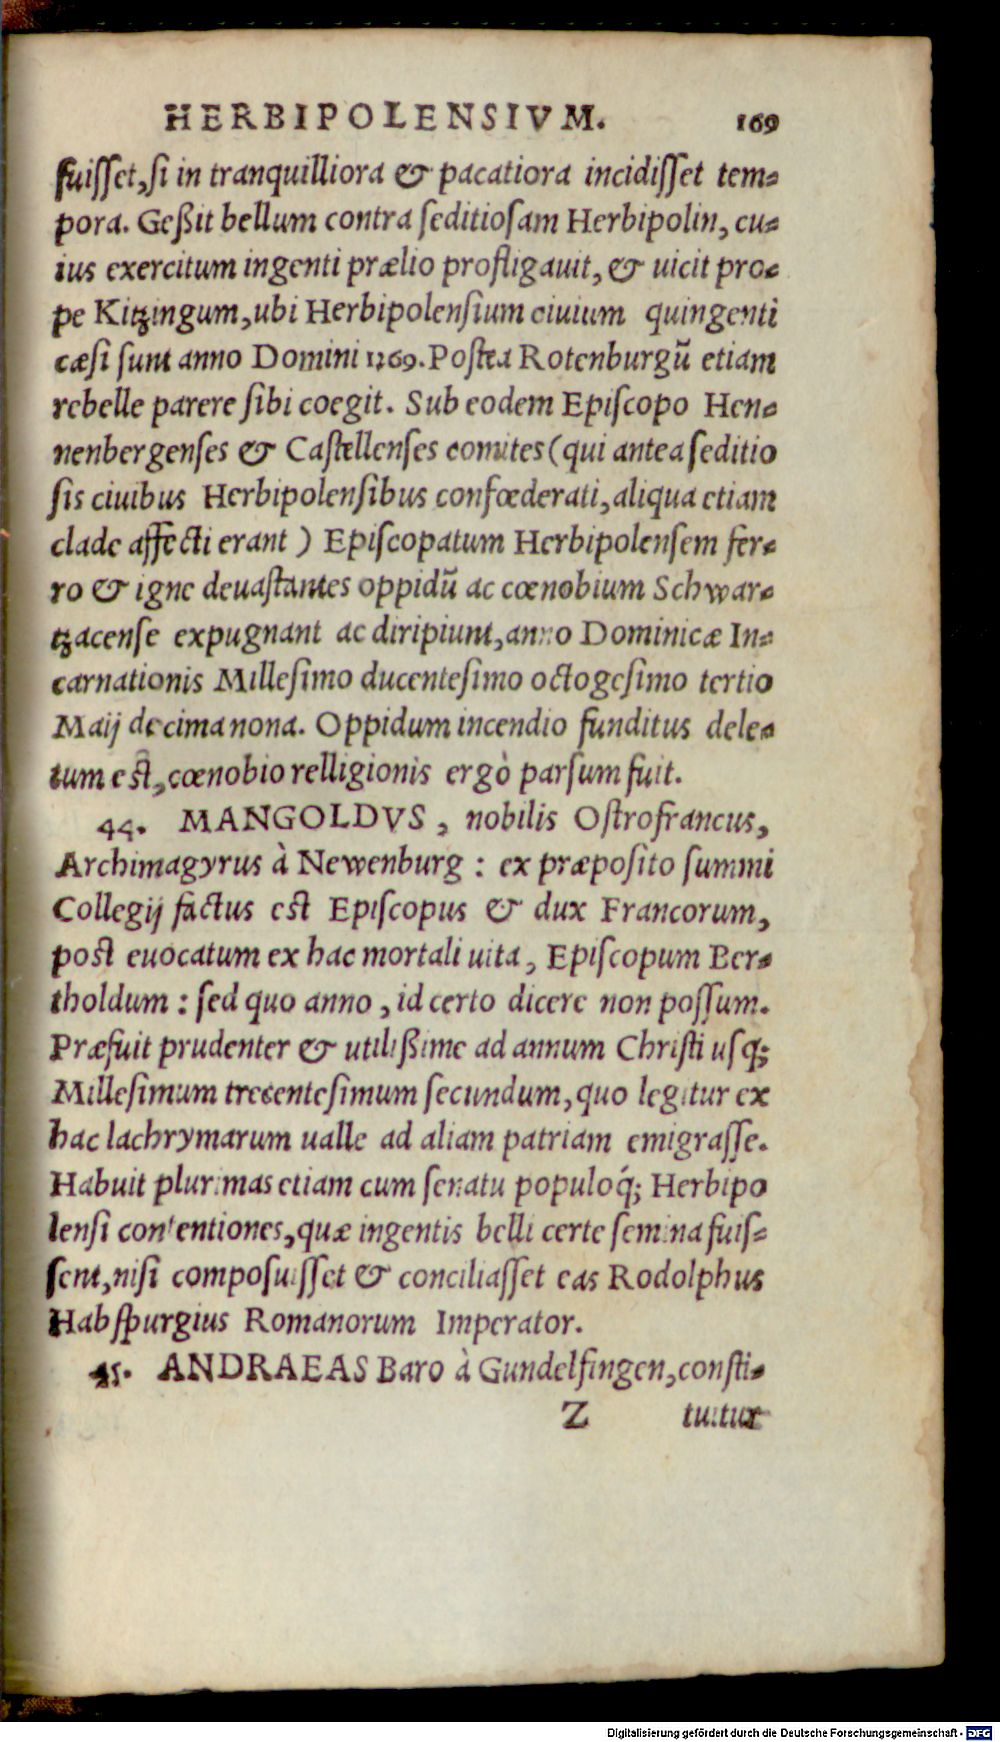 HERBIPOLENSIVM. 169
fuiſſet, ſi in tranquilliora & pacatiora incidiſſet tem-
pora. Geßit bellum contra ſeditioſam Herbipolin, cu-
ius exercitum ingenti prælio profligauit, & uicit pro-
pe Kitzingum, ubi Herbipolenſium ciuium quingenti
cæſi ſunt anno Domini 1269. Poſtea Rotenburgũ etiam
rebelle parere ſibi coegit. Sub eodem Epiſcopo Hen-
nenbergenſes & Caſtellenſes comites (qui antea ſeditio
ſis ciuibus Herbipolenſibus confœderati, aliqua etiam
clade affecti erant ) Epiſcopatum Herbipolenſem fer-
ro & igne deuaſtantes oppidũ ac cœnobium Schwar-
tzacenſe expugnant ac diripiunt, anno Dominicæ In-
carnationis Milleſimo ducenteſimo octogeſimo tertio
Maij decima nona. Oppidum incendio funditus dele-
tum eſt, cœnobio relligionis ergò parſum fuit.
44. MANGOLDVS, nobilis Oſtrofrancus,
Archimagyrus à Newenburg : ex præpoſito ſummi
Collegij factus eſt Epiſcopus & dux Francorum,
poſt euocatum ex hac mortali uita, Epiſcopum Ber-
tholdum : ſed quo anno, id certo dicere non poſſum.
Præfuit prudenter & utilißime ad annum Chriſti uſq;
Milleſimum trecenteſimum ſecundum, quo legitur ex
hac lachrymarum ualle ad aliam patriam emigraſſe.
Habuit plurimas etiam cum ſenatu populoq́; Herbipo
lenſi contentiones, quæ ingentis belli certe ſemina fuiſ-
ſent, niſi compoſuiſſet & conciliaſſet eas Rodolphus
Habſpurgius Romanorum Imperator.
45. ANDRAEAS Baro à Gundelfingen, conſti-
Z tuitur
Digitalisierung gefördert durch die Deutsche Forschungsgemeinschaft - DFG